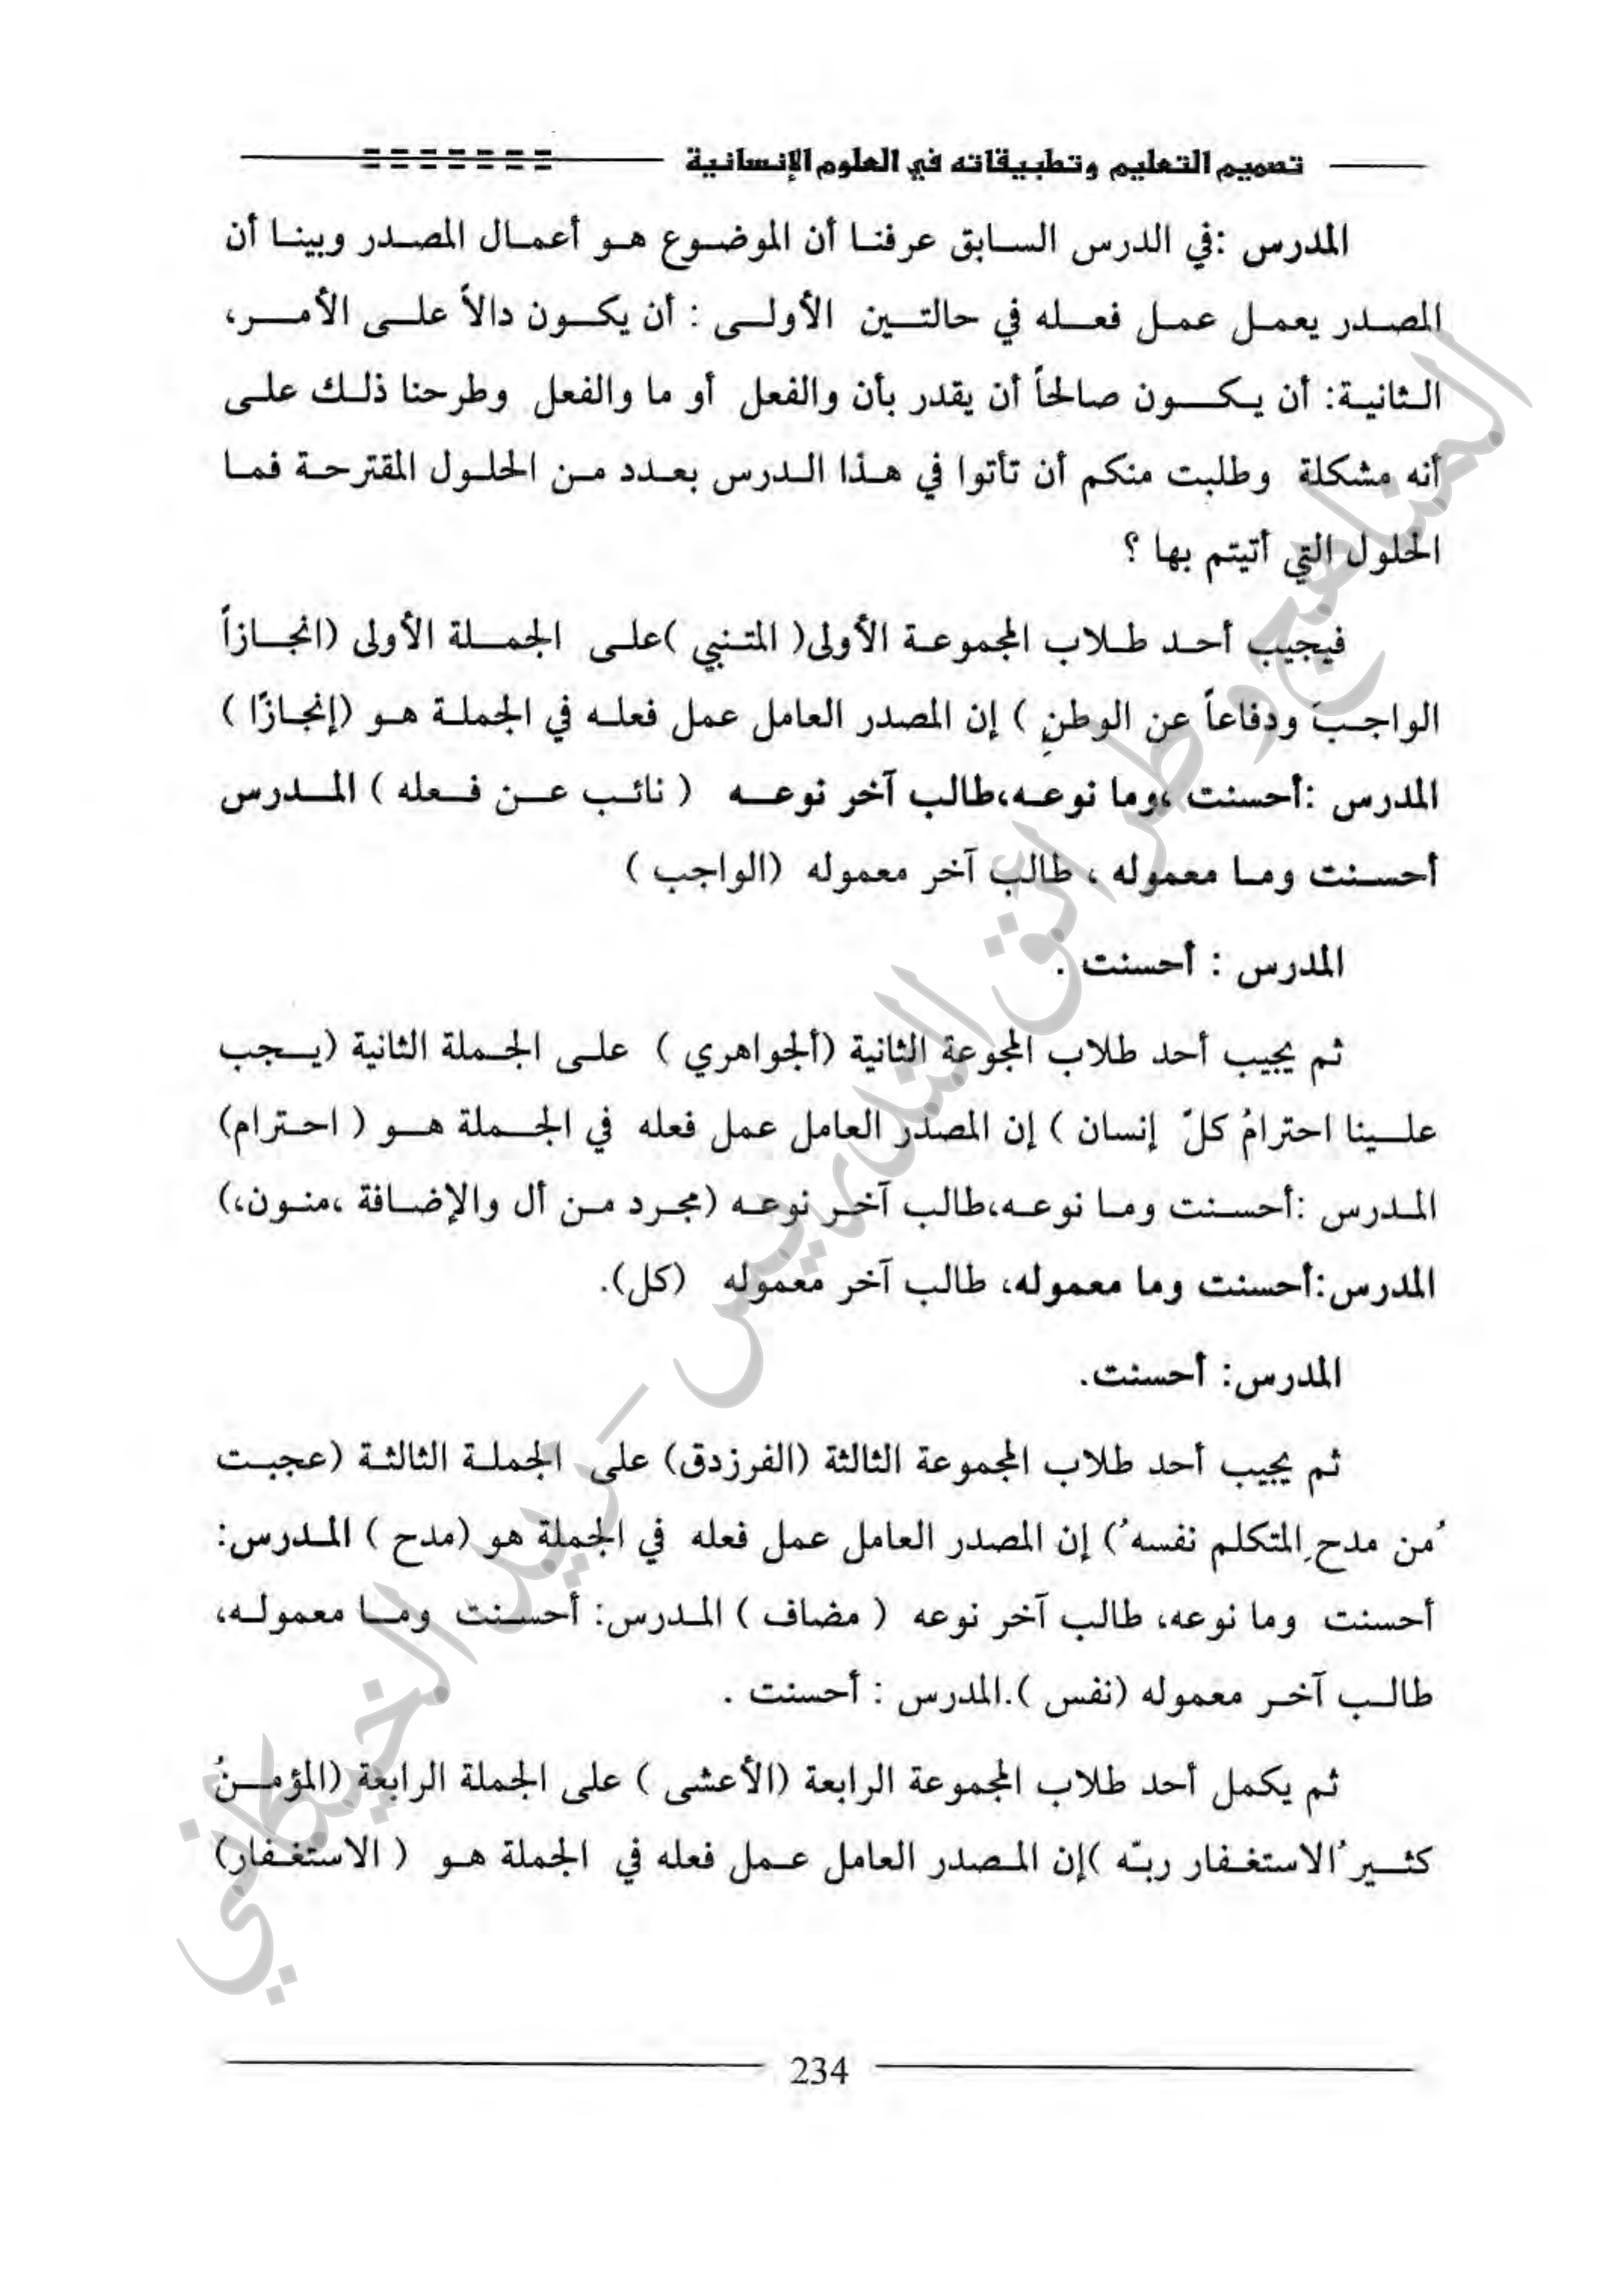 تصميم التعليم وتطبيقاته في العلوم الإنسانية
المدرس :في الدرس السابق عرفنا أن الموضوع هو أعمال المصدر وبينا أن
المصدر يعمل عمل فعله في حالتين الأولى : أن يكون دالاً على الأمر،
الثانية: أن يكون صالحاً أن يقدر بأن والفعل أو ما والفعل وطرحنا ذلك على
أنه مشكلة وطلبت منكم أن تأتوا في هذا الدرس بعدد من الحلول المقترحة فما
الحلول التي أتيتم بها ؟
فيجيب أحد طلاب المجموعة الأولى( المتنبي )على الجملة الأولى (انجازاً
الواجبَ ودفاعاً عن الوطنِ ) إن المصدر العامل عمل فعله في الجملة هو (إنجازًا )
المدرس :أحسنت ،وما نوعه،طالب آخر نوعه ( نائب عن فعله ) المدرس
أحسنت وما معموله ، طالب آخر معموله (الواجب )
المدرس : أحسنت .
ثم يجيب أحد طلاب المجوعة الثانية (ألجواهري ) على الجملة الثانية (يجب
علينا احترامُ كلّ إنسان ) إن المصدر العامل عمل فعله في الجملة هو ( احترام)
المدرس :أحسنت وما نوعه،طالب آخر نوعه (مجرد من أل والإضافة ،منون،)
المدرس:أحسنت وما معموله، طالب آخر معموله (كل).
المدرس: أحسنت.
ثم يجيب أحد طلاب المجموعة الثالثة (الفرزدق) على الجملة الثالثة (عجبت
ُمن مدح ِالمتكلم نفسه ُ) إن المصدر العامل عمل فعله في الجملة هو (مدح ) المدرس:
أحسنت وما نوعه، طالب آخر نوعه ( مضاف ) المدرس: أحسنت وما معموله،
طالب آخر معموله (نفس ).المدرس : أحسنت .
ثم يكمل أحد طلاب المجموعة الرابعة (الأعشى ) على الجملة الرابعة (المؤمنُ
كثير ُالاستغفار ربّه )إن المصدر العامل عمل فعله في الجملة هو ( الاستغفار)
234
المناهج وطرائق التدريس